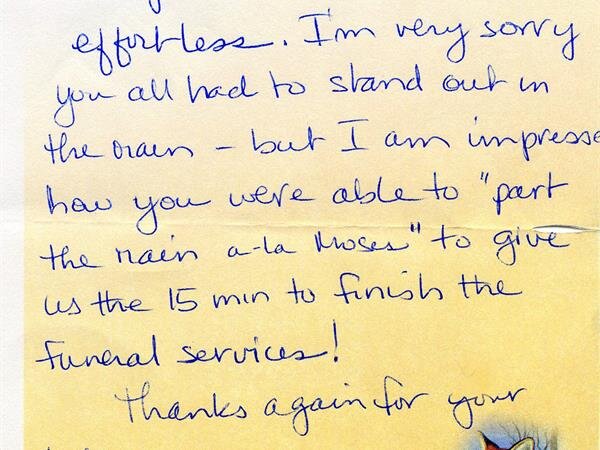 effortless. I'm very sorry
you all had to stand out in
the rain – but I am impresse
how you were able to "part
the rain a-la Moses" to give
us the 15 min to finish the
funeral services!
Thanks again for your